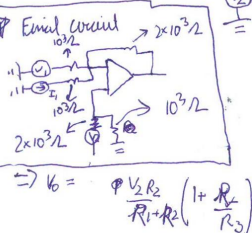 Final circuit
10³Ω
2×10³Ω
V₁
I₁
10³Ω
10³Ω
2×10³Ω
V
=> V₀ = V₂R₂ / R₁+R₂ (1 + R₂/R₃)